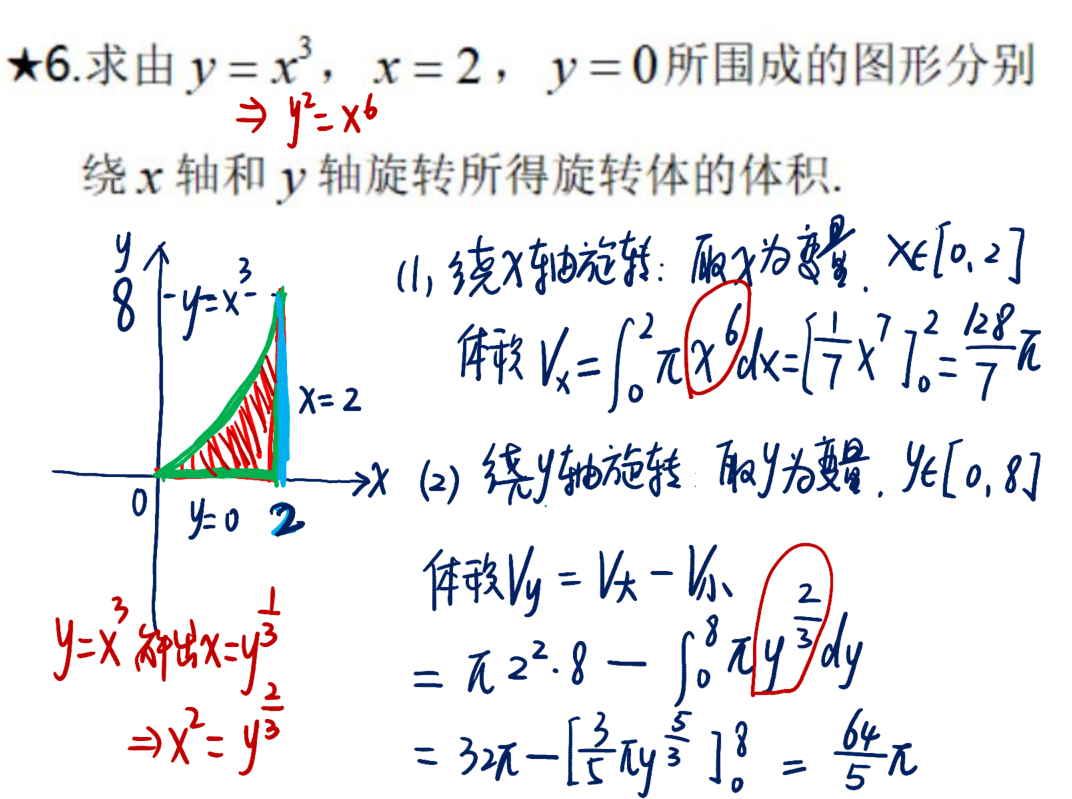 ★6.求由 y = x³， x = 2， y = 0所围成的图形分别
⇒ y²=x⁶
绕 x 轴和 y 轴旋转所得旋转体的体积.
y
8
y=x³
x=2
x
0
y=0
2
y=x³ 解出x=y^(1/3)
⇒x²=y^(2/3)
(1) 绕x轴旋转: 取x为变量. x∈[0,2]
体积 Vx=∫₀² πx⁶dx=[1/7 x⁷]₀²=128/7 π
(2) 绕y轴旋转 取y为变量. y∈[0,8]
体积Vy = V大 - V小
= π2²·8 - ∫₀⁸ πy^(2/3)dy
= 32π-[3/5 πy^(5/3)]₀⁸ = 64/5 π